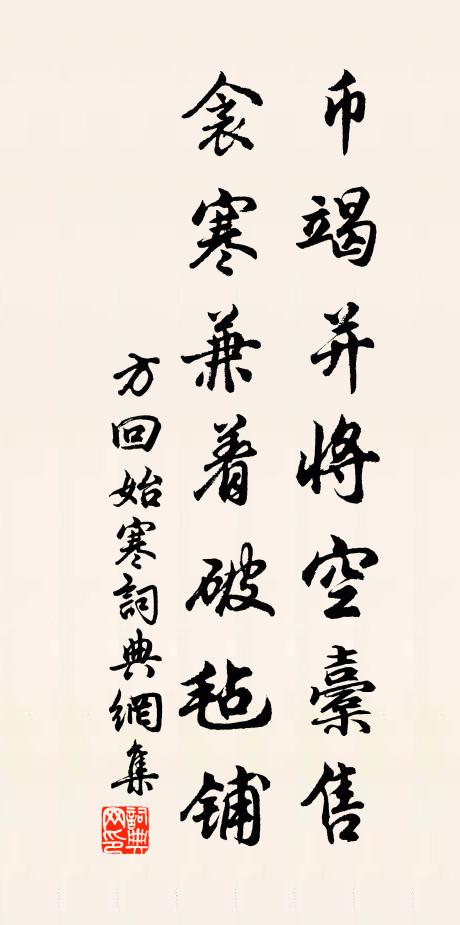 币竭并将空橐售
衾寒兼着破毡铺
方回始寒詞典網集
詞典網印